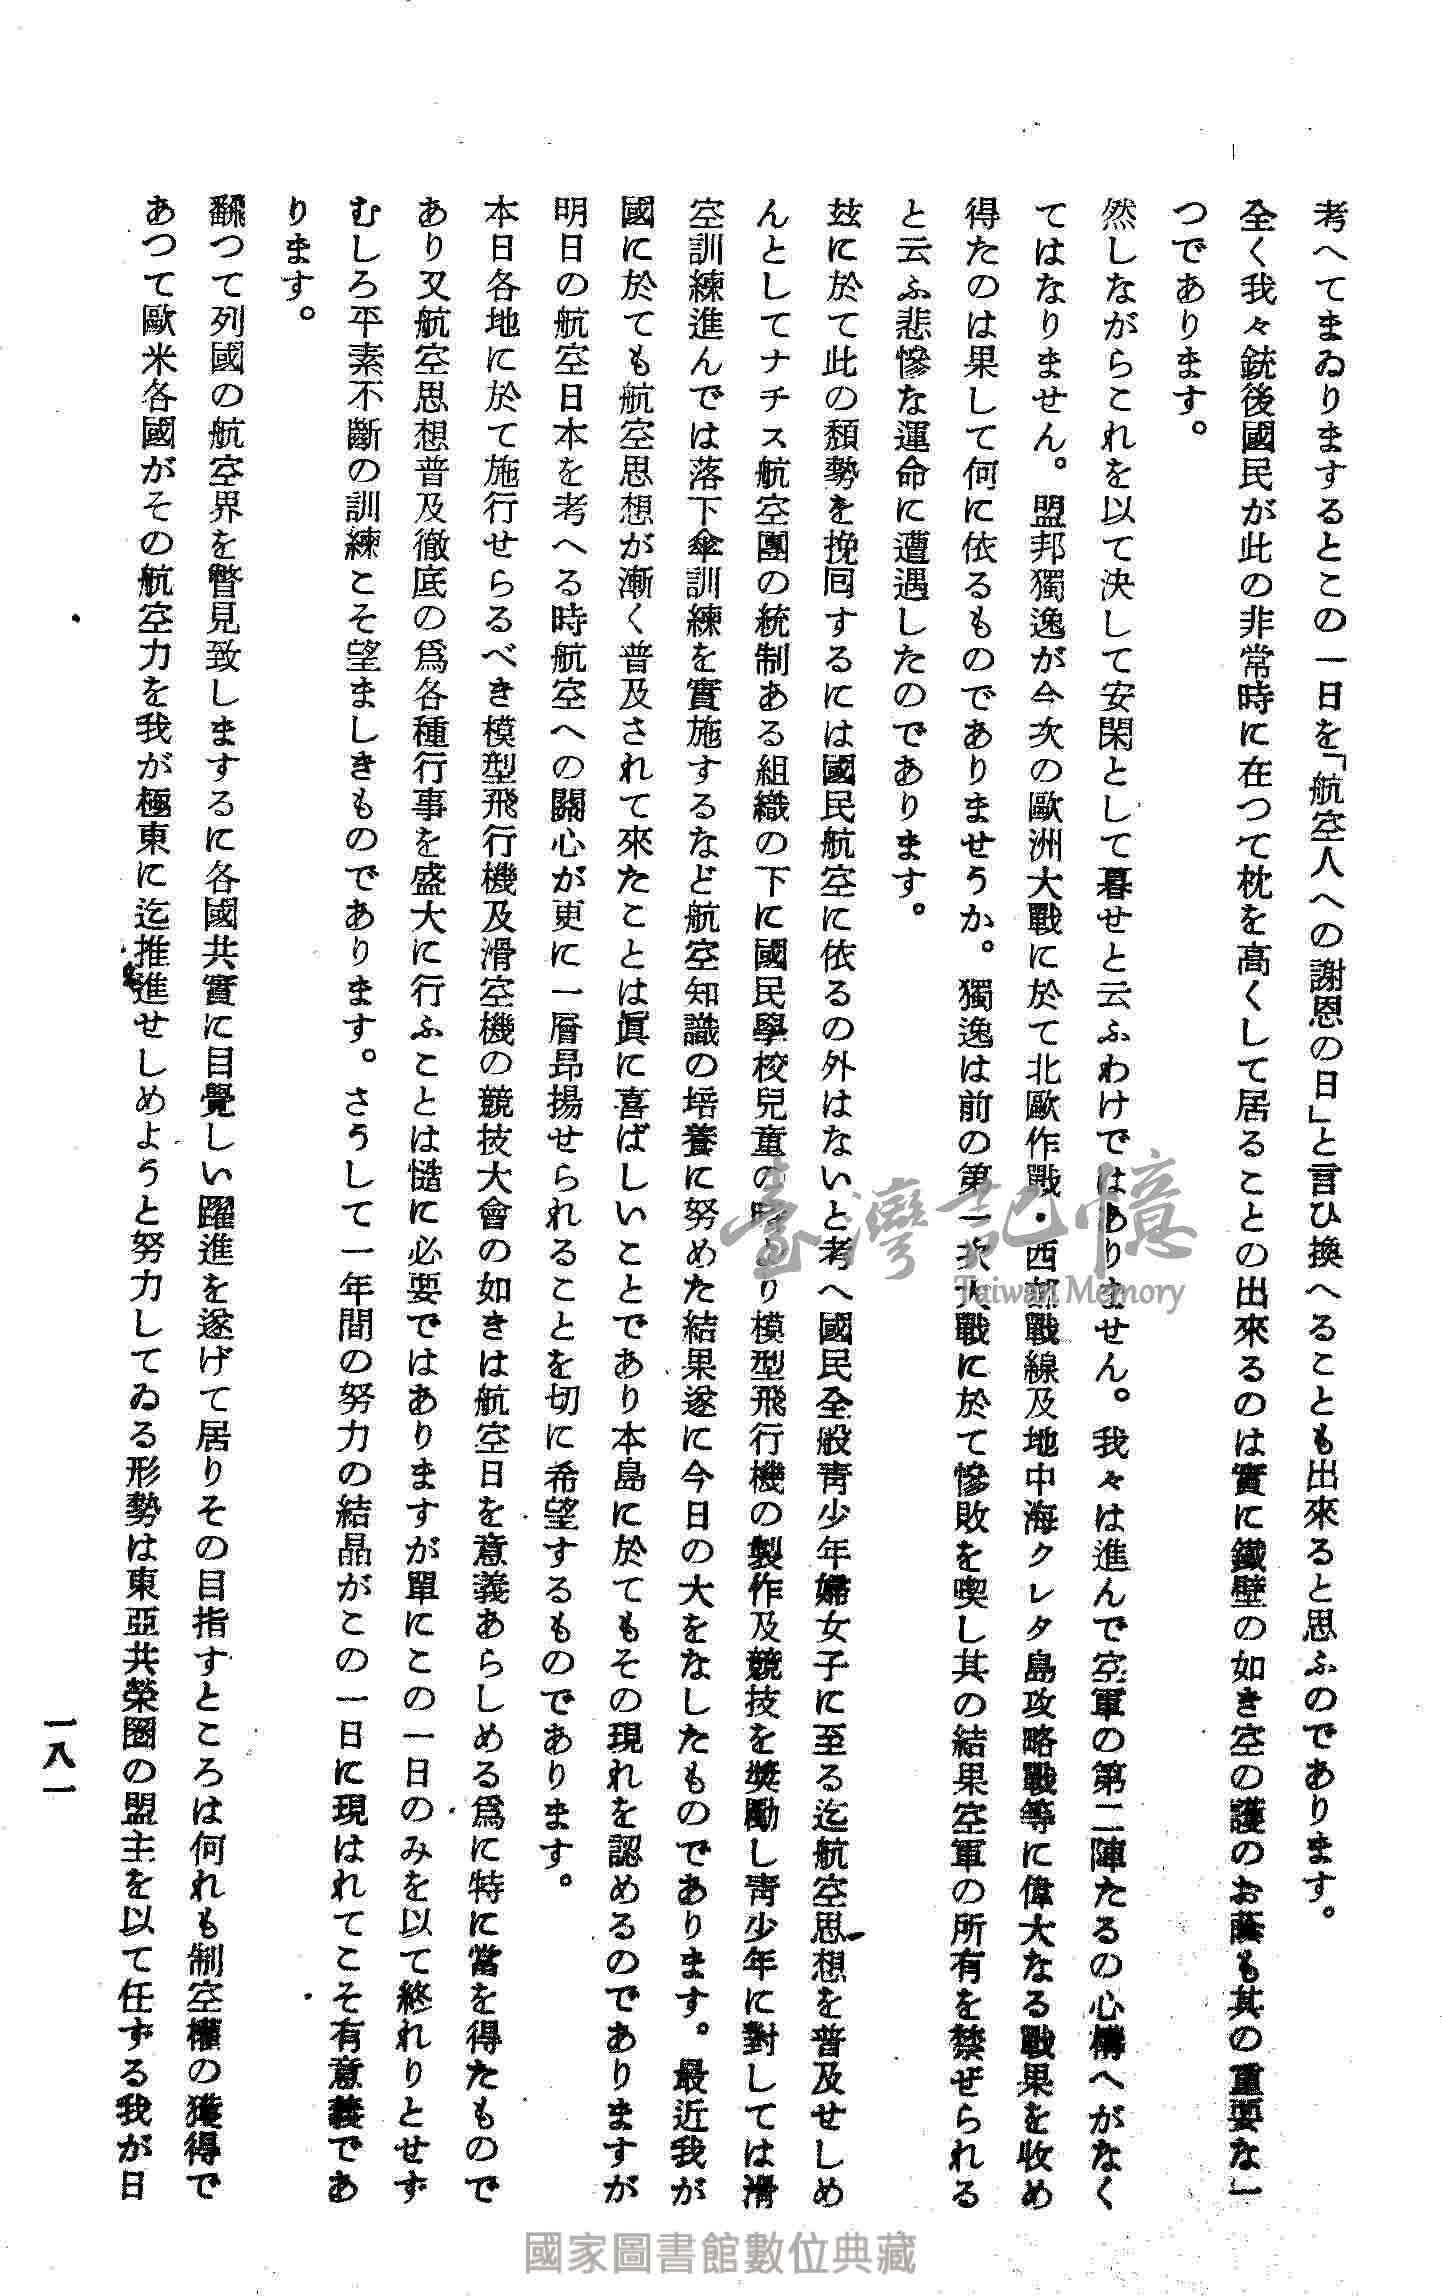 考へてまゐりまするとこの一日を「航空人への謝恩の日」と言ひ換へることも出來ると思ふのであります。
全く我々銃後國民が此の非常時に在つて枕を高くして居ることの出來るのは實に鐵壁の如き空の護のお蔭も其の重要な一
つであります。
然しながらこれを以て決して安閑として暮せと云ふわけではありません。我々は進んで空軍の第二陣たるの心構へがなく
てはなりません。盟邦獨逸が今次の歐洲大戰に於て北歐作戰・西部戰線及地中海クレタ島攻略戰等に偉大なる戰果を收め
得たのは果して何に依るものでありませうか。獨逸は前の第一次大戰に於て慘敗を喫し其の結果空軍の所有を禁ぜられる
と云ふ悲慘な運命に遭遇したのであります。
玆に於て此の頽勢を挽囘するには國民航空に依るの外はないと考へ國民全般靑少年婦女子に至る迄航空思想を普及せしめ
んとしてナチス航空團の統制ある組織の下に國民學校兒童の時より模型飛行機の製作及競技を奬勵し靑少年に對しては滑
空訓練進んでは落下傘訓練を實施するなど航空知識の培養に努めた結果遂に今日の大をなしたものであります。最近我が
國に於ても航空思想が漸く普及されて來たことは眞に喜ばしいことであり本島に於てもその現れを認めるのでありますが
明日の航空日本を考へる時航空への關心が更に一層昂揚せられることを切に希望するものであります。
本日各地に於て施行せらるべき模型飛行機及滑空機の競技大會の如きは航空日を意義あらしめる爲に特に當を得たもので
あり又航空思想普及徹底の爲各種行事を盛大に行ふことは慥に必要ではありますが單にこの一日のみを以て終れりとせず
むしろ平素不斷の訓練こそ望ましきものであります。さうして一年間の努力の結晶がこの一日に現はれてこそ有意義であ
ります。
飜つて列國の航空界を瞥見致しまするに各國共實に目覺しい躍進を遂げて居りその目指すところは何れも制空權の獲得で
あつて歐米各國がその航空力を我が極東に迄推進せしめようと努力してゐる形勢は東亞共榮圈の盟主を以て任ずる我が日
一八一
臺灣記憶
Taiwan Memory
國家圖書館數位典藏